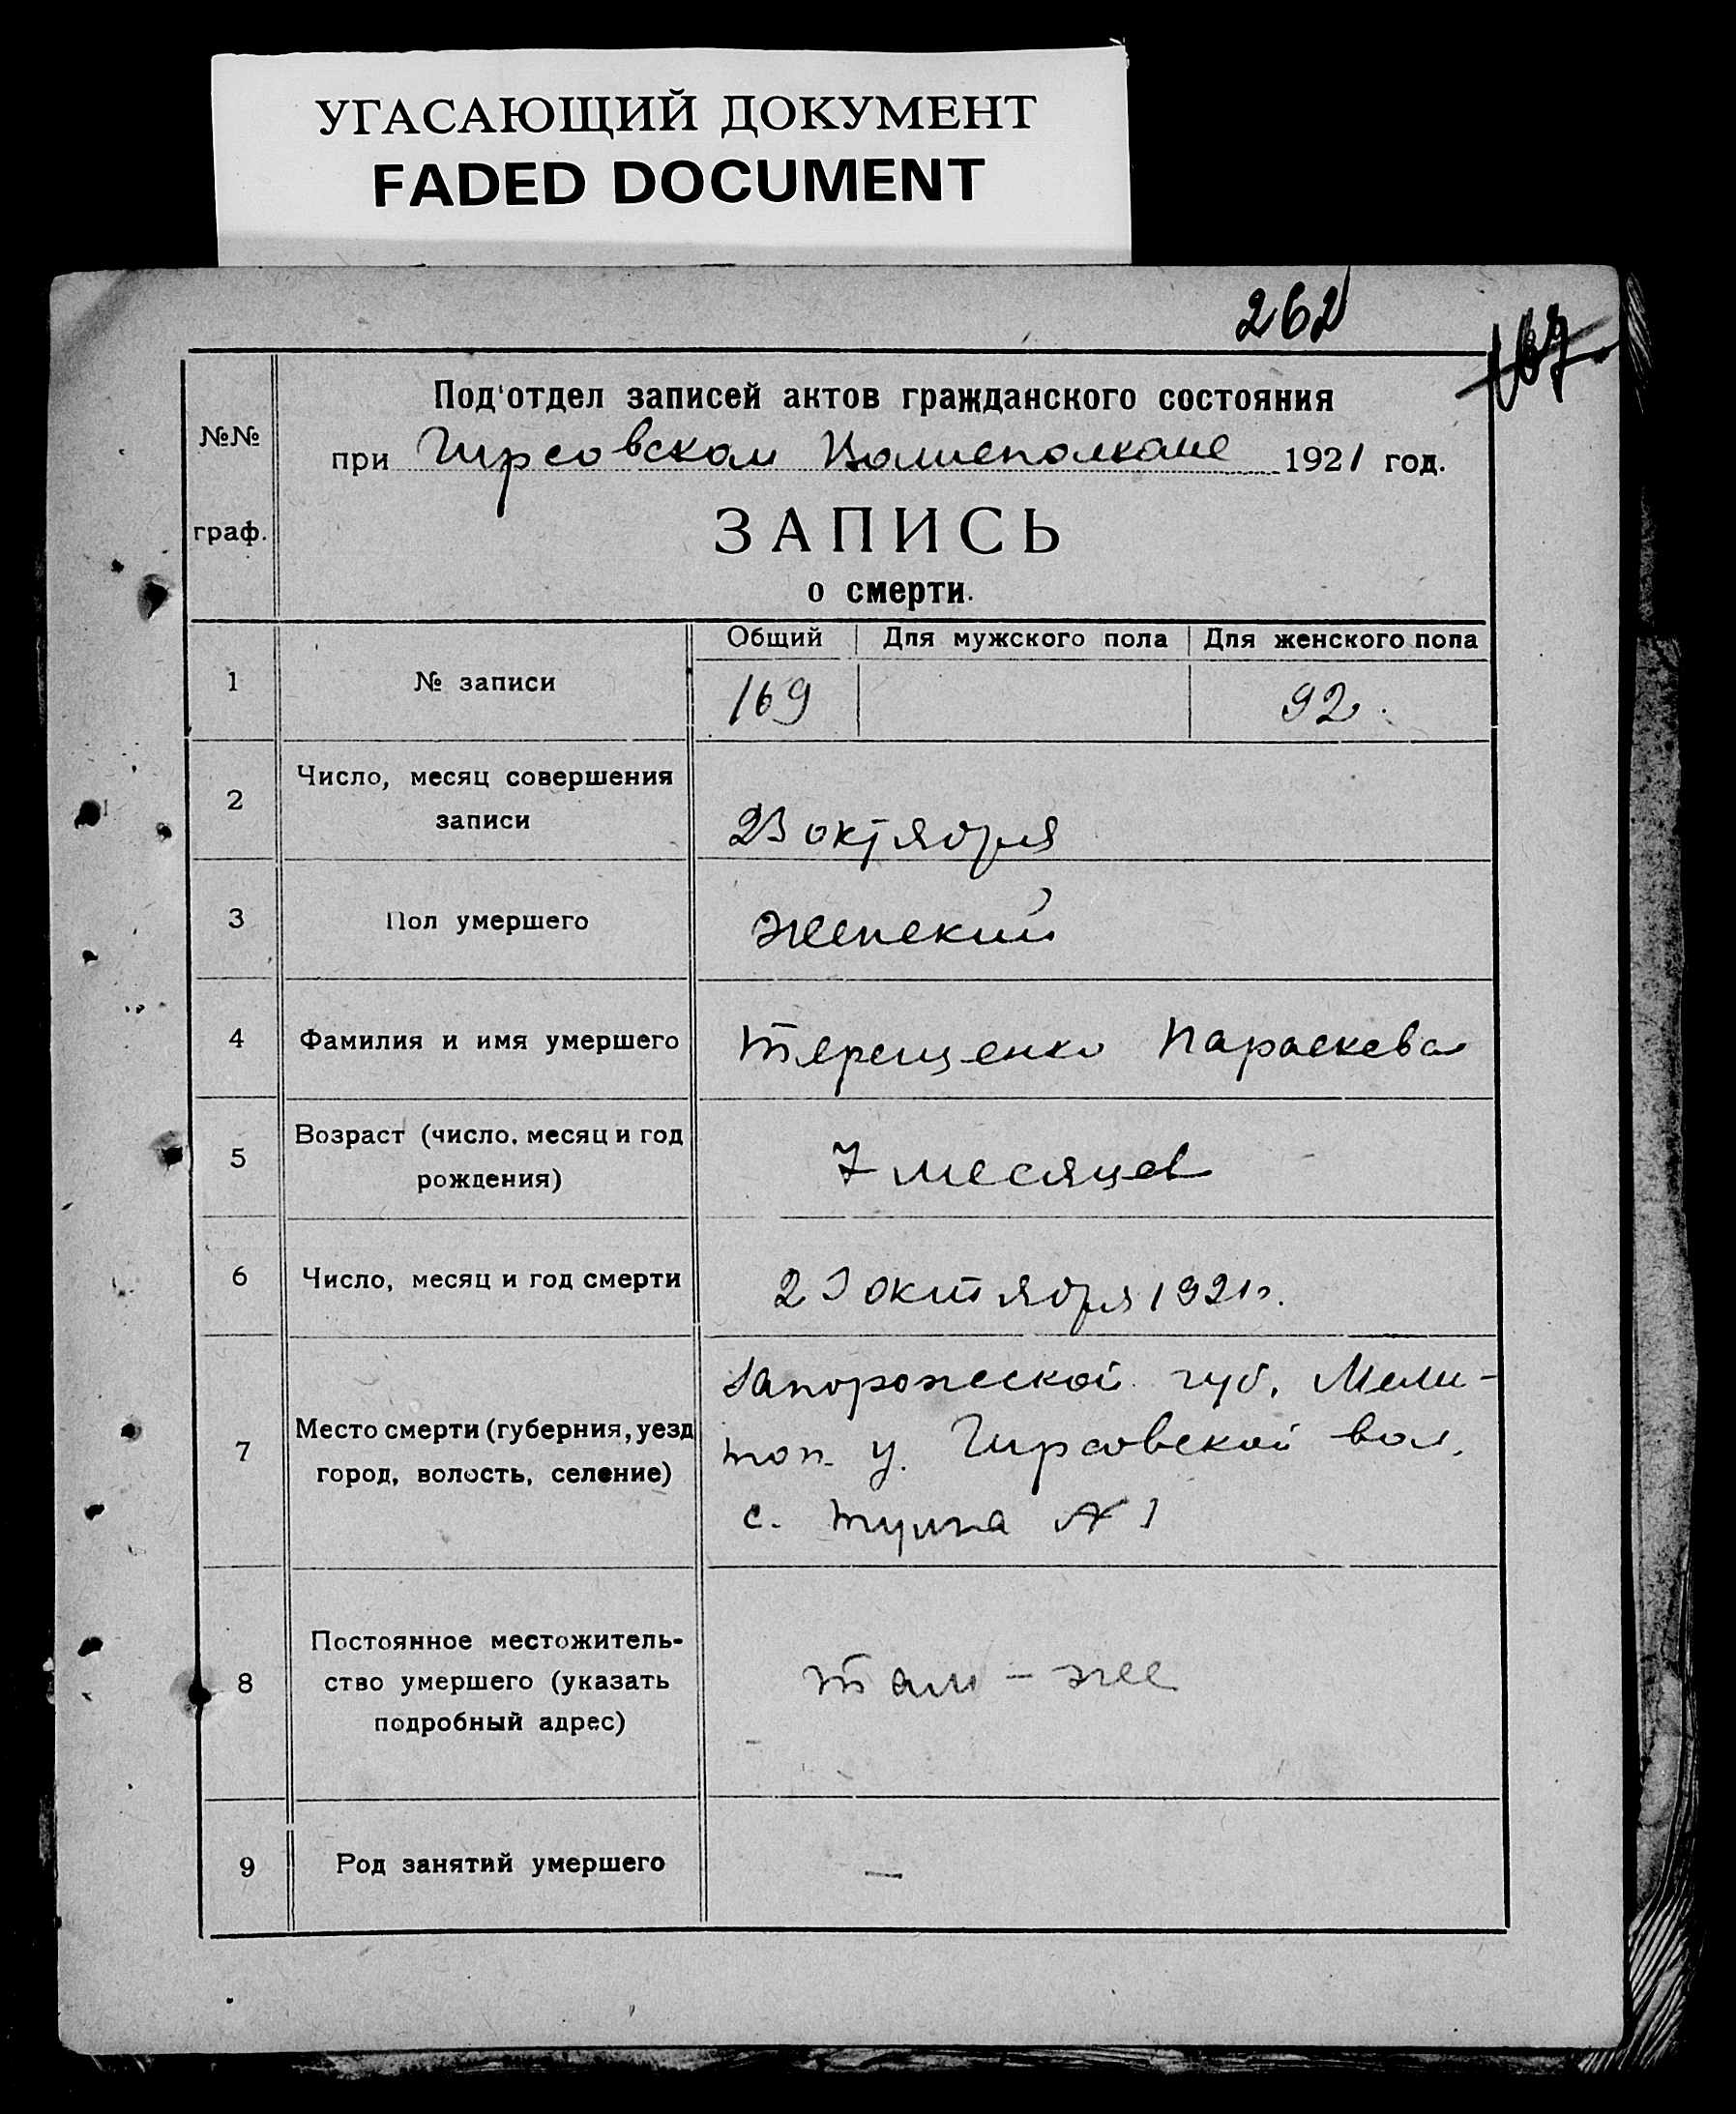 УГАСАЮЩИЙ ДОКУМЕНТ
FADED DOCUMENT
262
167
№№ граф.
Под'отдел записей актов гражданского состояния
при Гирсовском Волисполкоме 1921 год.
ЗАПИСЬ
о смерти.
Общий Для мужского пола Для женского пола
1 № записи 169 92.
2 Число, месяц совершения
записи 23 октября
3 Пол умершего Женский
4 Фамилия и имя умершего Терещенко Параскева
5 Возраст (число, месяц и год
рождения) 7 месяцев
6 Число, месяц и год смерти октября 1921 г.
7 Место смерти (губерния, уезд
город, волость, селение)
Запорожской губ. Мели-
топ. у. Гирсовской вол.
с. №1
8 Постоянное местожитель-
ство умершего (указать
подробный адрес)
там - же
9 Род занятий умершего —